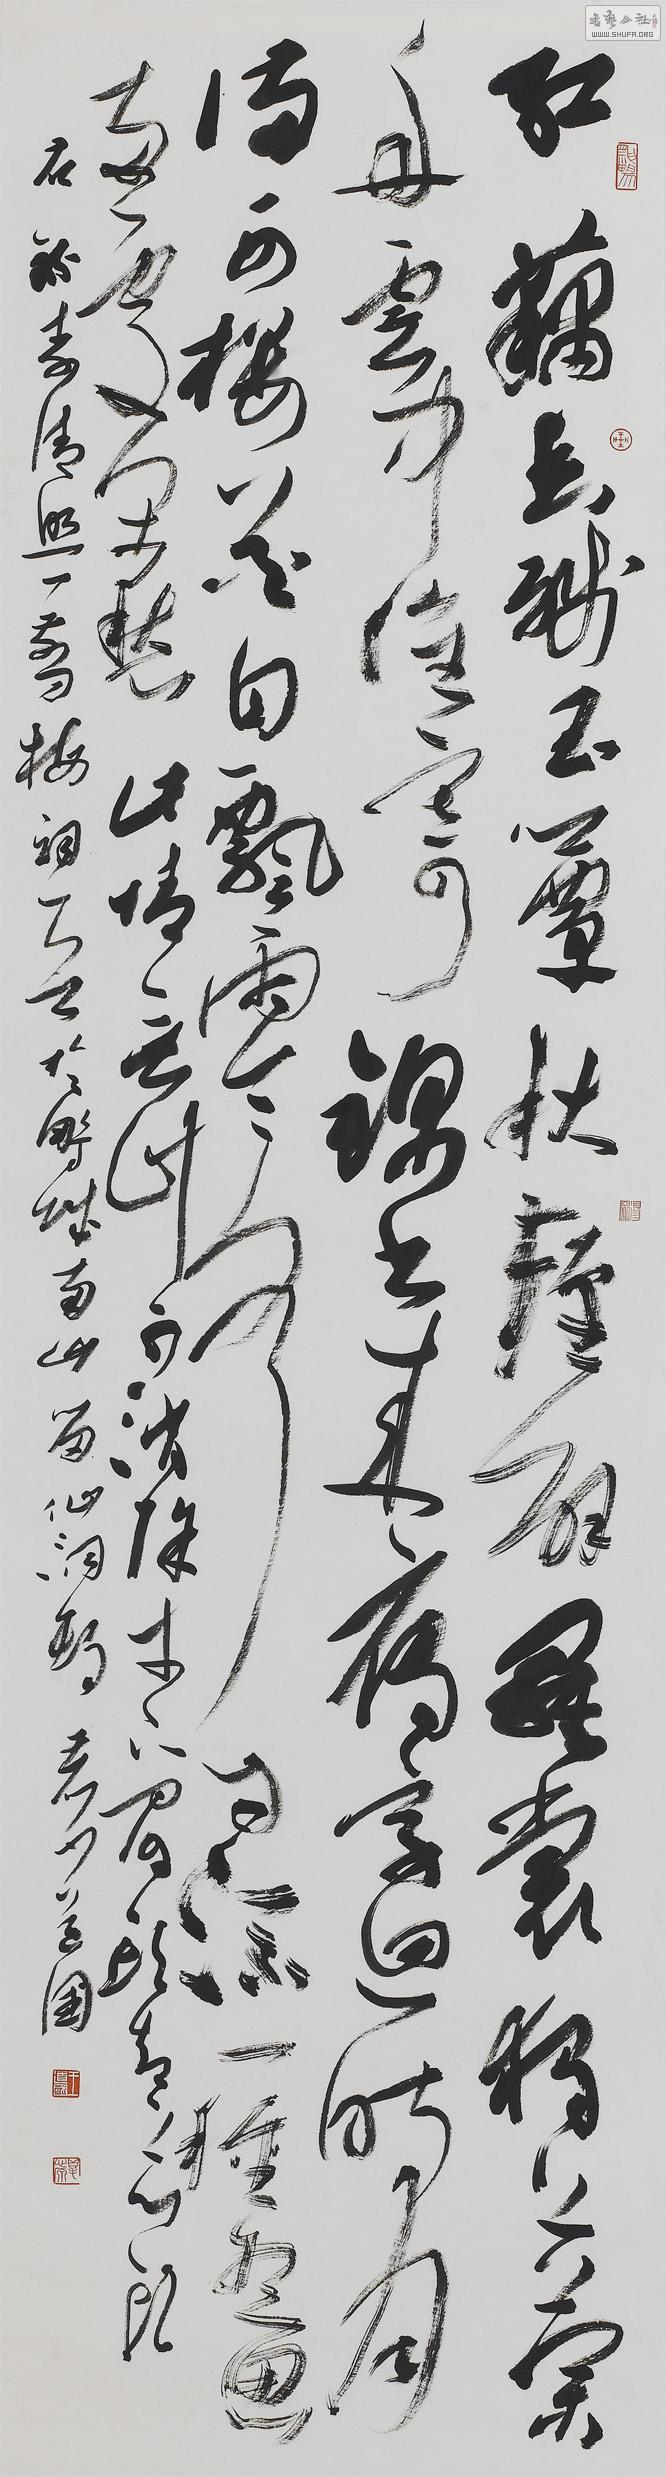 紅藕香殘玉簟秋輕解羅裳獨上蘭
舟雲中誰寄錦書來雁字迴時月
滿西樓花自飄零水自流一種相思
兩處閑愁此情無計可消除才下眉頭卻上心頭
右錄李清照一剪梅詞 於 城南山留仙洞 道國
书艺公社
WWW.SHUFA.ORG